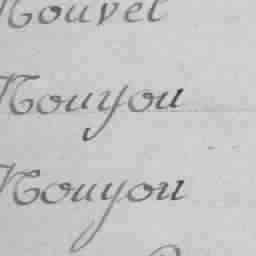 Nouvel
Nouyou
Nouyou